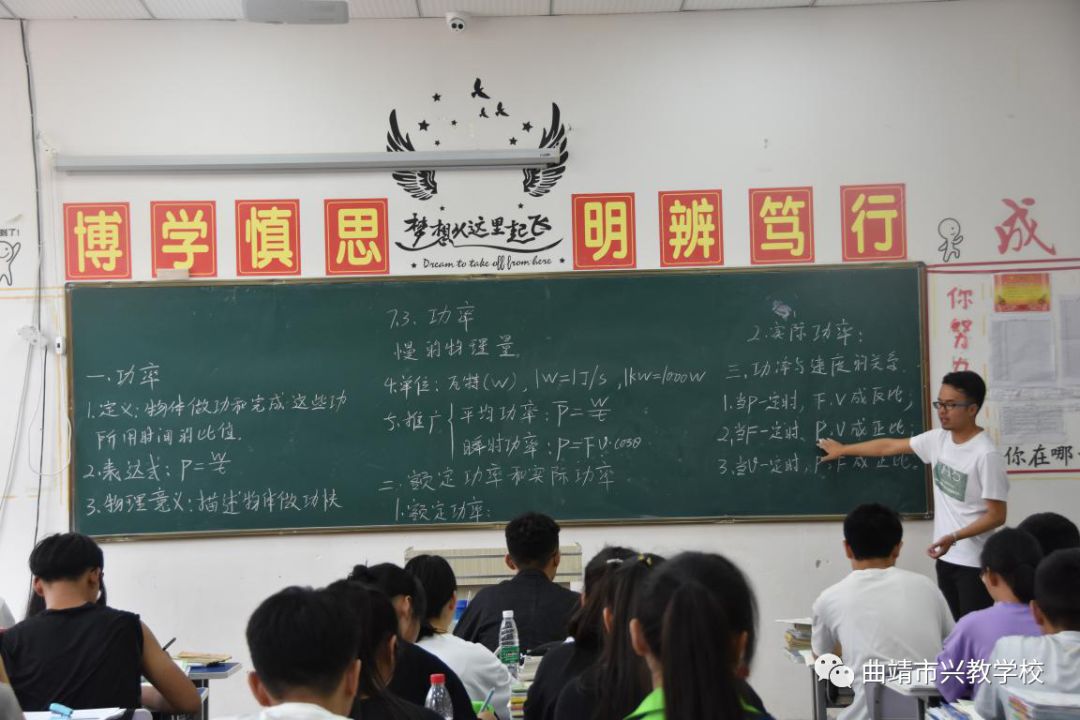 博学慎思
明辨笃行
梦想从这里起飞
Dream to take off from here
到了!
成
你努力
你在哪
7.3. 功率
一.功率
1.定义:物体做功和完成这些功
所用时间的比值.
2.表达式:P=W/t
3.物理意义:描述物体做功快
慢的物理量.
4.单位:瓦特(W),1W=1J/s,1kW=1000W
5.推广{平均功率:P̄=W/t
瞬时功率:P=F.V.cosθ.
二.额定功率和实际功率
1.额定功率:
2.实际功率:
三.功率与速度的关系.
1.当P一定时,F.V成反比;
2.当F一定时,P.V成正比;
3.当V一定时,P.F成正比.
曲靖市兴教学校